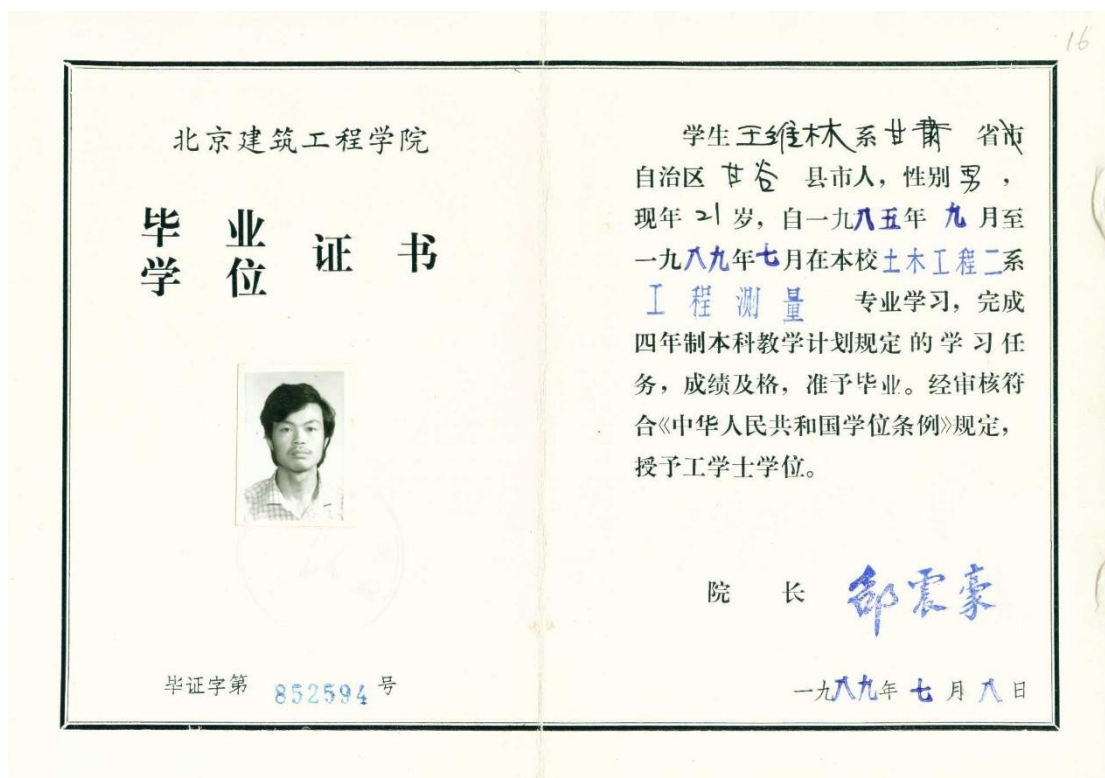 16
北京建筑工程学院
毕业
学位
证书
毕证字第 852594 号
学生王维林系甘肃 省市
自治区 甘谷 县市人，性别男，
现年 21 岁，自一九八五年 九 月至
一九八九年七月在本校土木工程二系
工程测量 专业学习，完成
四年制本科教学计划规定的学习任
务，成绩及格，准予毕业。经审核符
合《中华人民共和国学位条例》规定，
授予工学士学位。
院 长 邵震豪
一九八九年 七 月 八 日